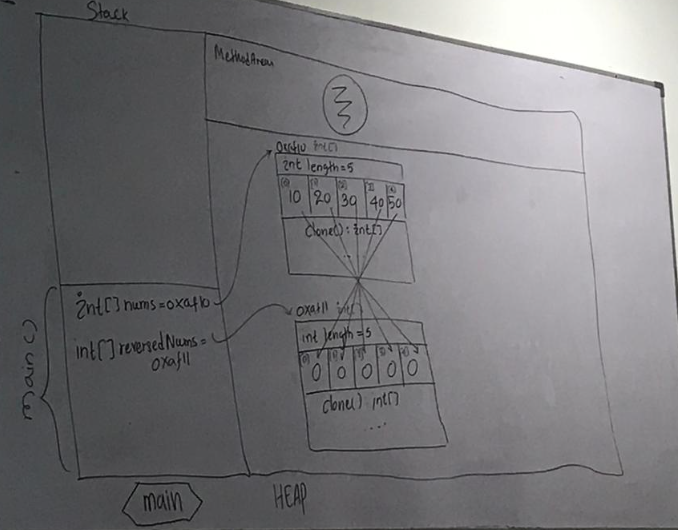 Stack
Method Area
0xaf10 int[]
int length=5
[0] [1] [2] [3] [4]
10 20 30 40 50
clone() : int[]
...
int[] nums=0xaf10
int[] reversedNums=
0xaf11
main()
0xaf11 int[]
int length=5
[0] [1] [2] [3] [4]
0 0 0 0 0
clone() : int[]
...
main
HEAP